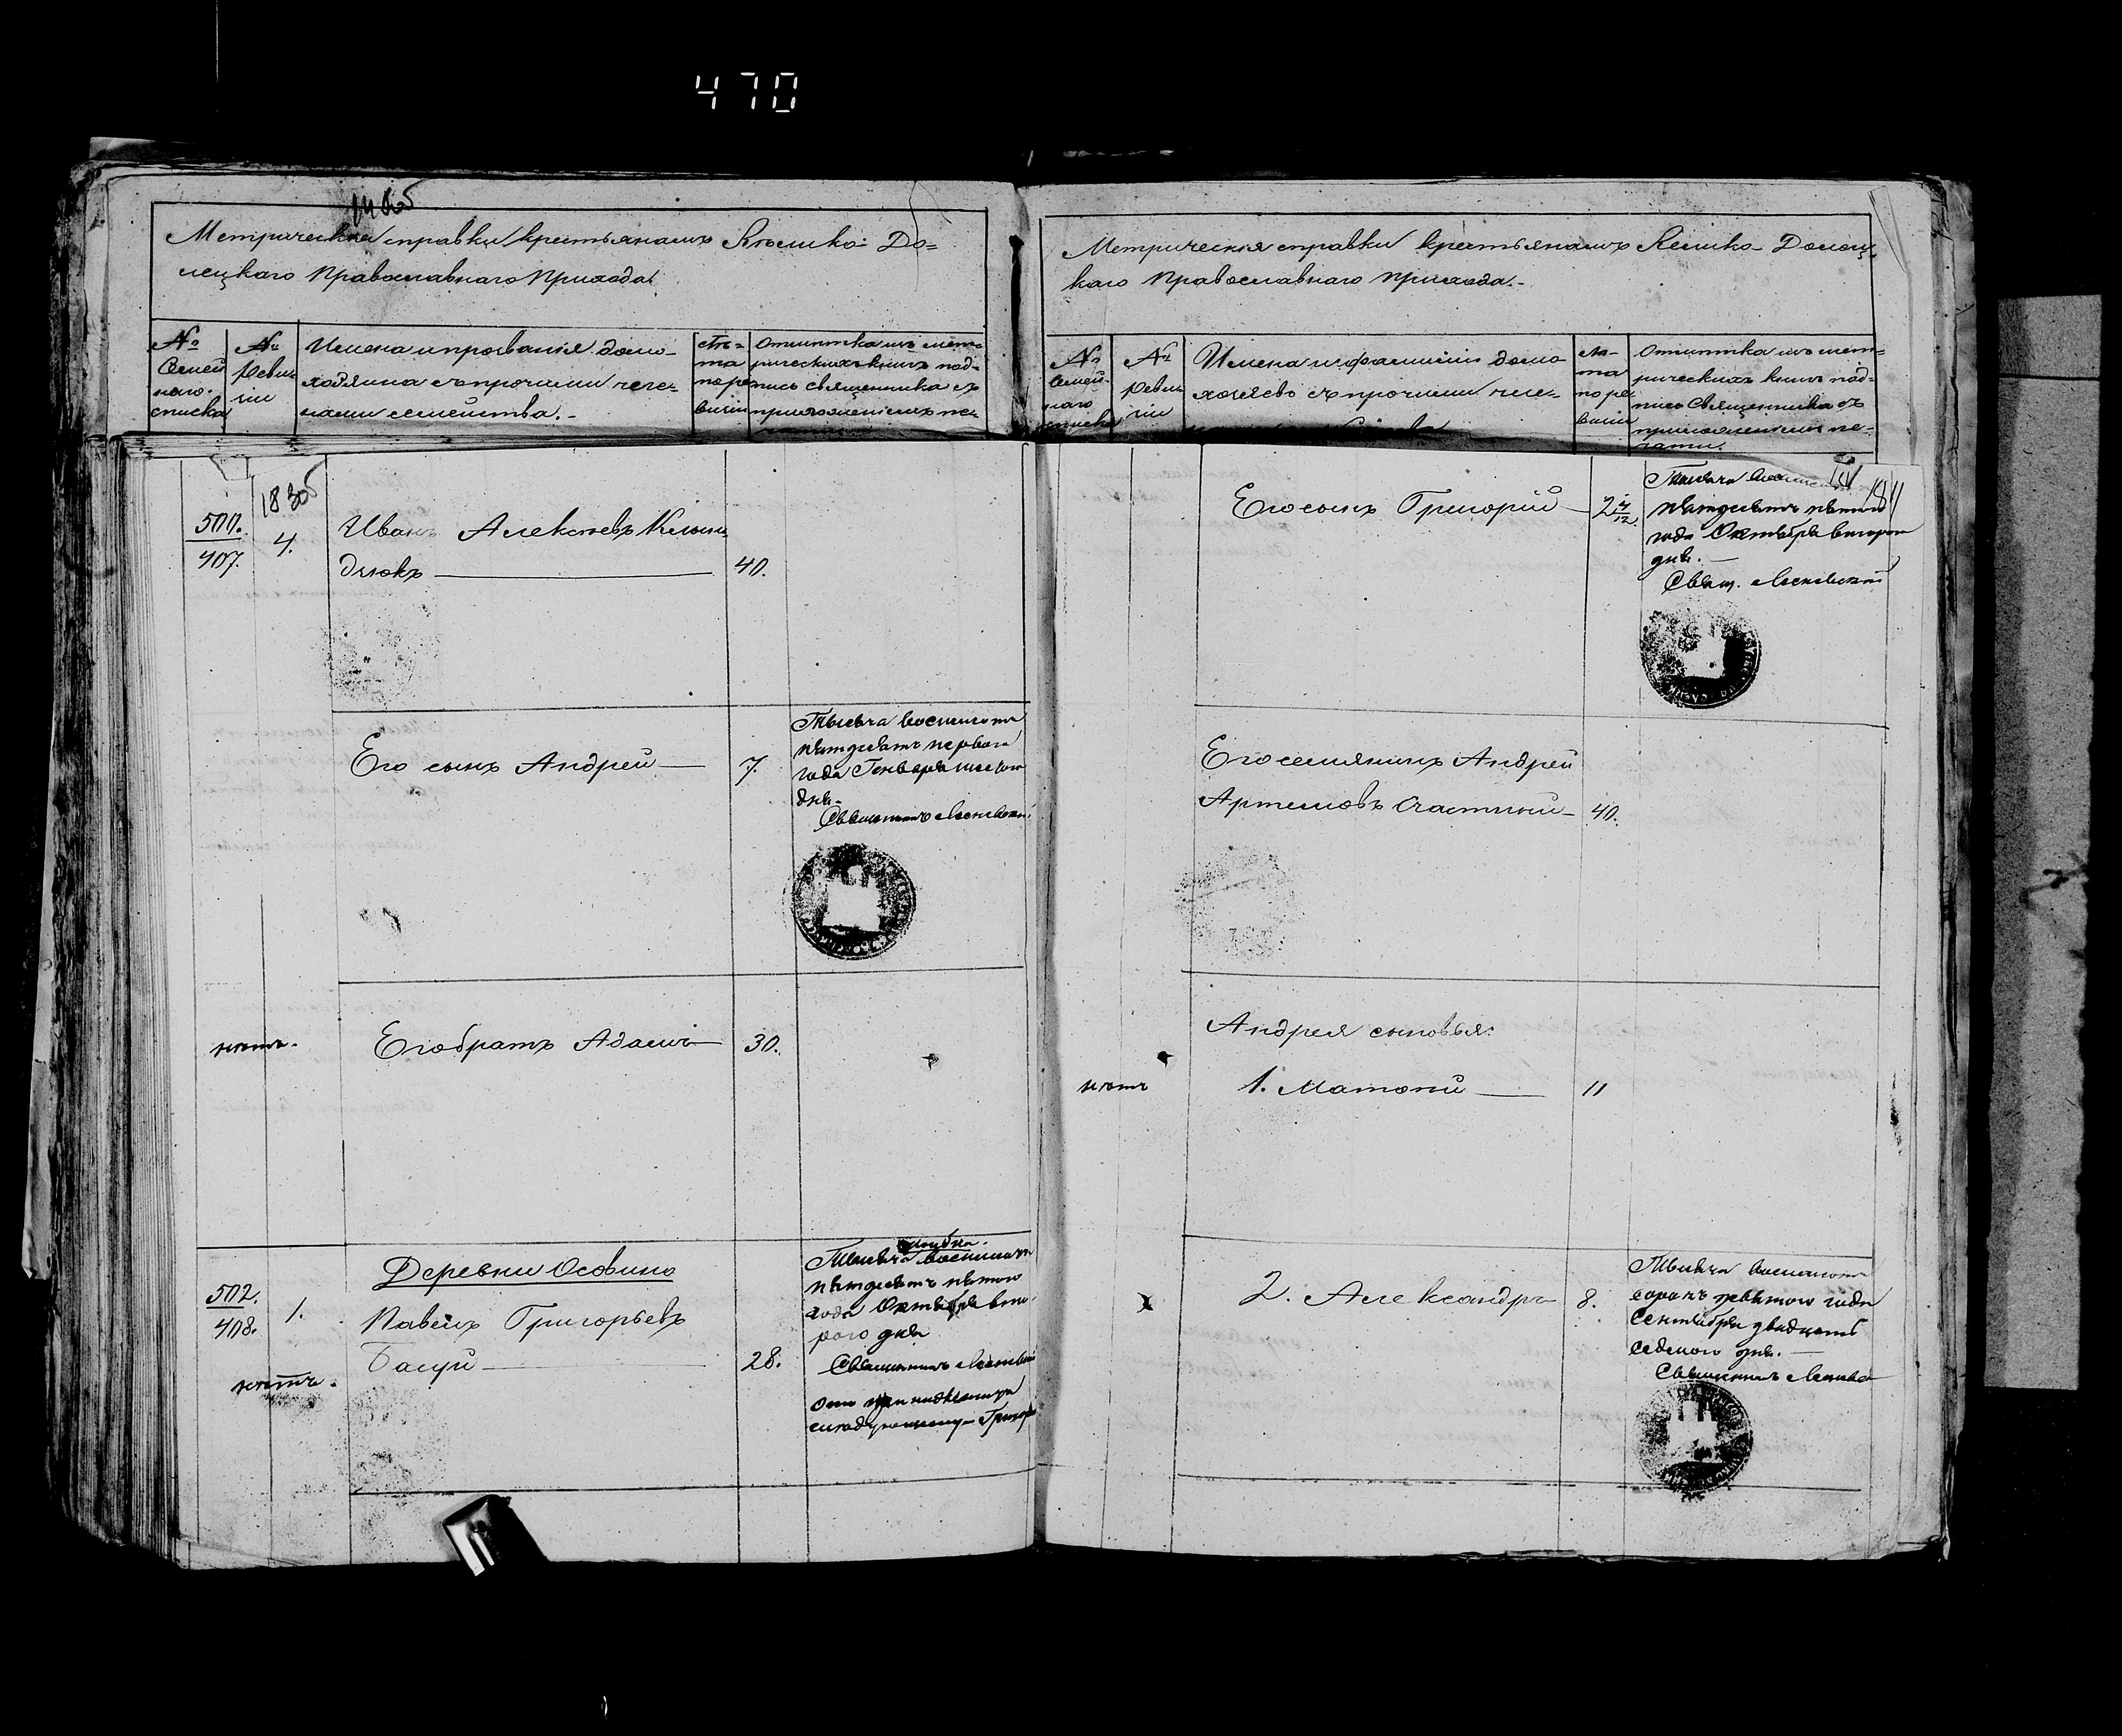 470
Метрическія справки крестьянамъ Велико-До=
лецкаго Православнаго Прихода.
№
Семей
наго
списка
№
Реви
зіи
Имена и прозванія домо-
хозяина съ прочими чле-
нами семейства.-
Лѣ=
та
по ре
визіи
Отмѣтка изъ мет-
рическихъ книгъ под-
пись священника съ
приложеніемъ пе-
500.
407.
4.
Иванъ Алексѣевъ
дюкъ
40.
Его сынъ Андрей
7.
Тысяча восемьсотъ
пятьдесятъ перваго
года Генваря шестаго
дня.
Священникъ
нѣтъ.
Его братъ Адамъ
30.
502.
408.
1.
нѣтъ.
Деревни Осовино
Павелъ Григорьевъ
28.
ошибка.
Тысяча восемьсотъ
пятьдесятъ пятого
года Октября вто-
рого дня
Священникъ
слѣдующему Григорію
Метрическія справки крестьянамъ Велико-Долец-
каго Православнаго Прихода.-
№
Семей-
наго
списка
№
Реви
зіи
Имена и фамиліи домо-
хозяевъ съ прочими чле-
Лѣ-
та
по ре
визіи
Отмѣтка изъ мет=
рическихъ книгъ под=
пись Священника съ
приложеніемъ пе-
чати.
Его сынъ Григорій
2 4/12
181
Тысяча
пятьдесятъ пятого
года Октября второго
дня.
Свящ.
Его семянинъ Андрей
Артемовъ Счастный
40.
Андрея сыновья:
нѣтъ
1. Матѳій
11
2. Александръ
8.
Тысяча восемьсотъ
сорокъ девятого года
Сентября двадцать
седьмого дня.
Священникъ